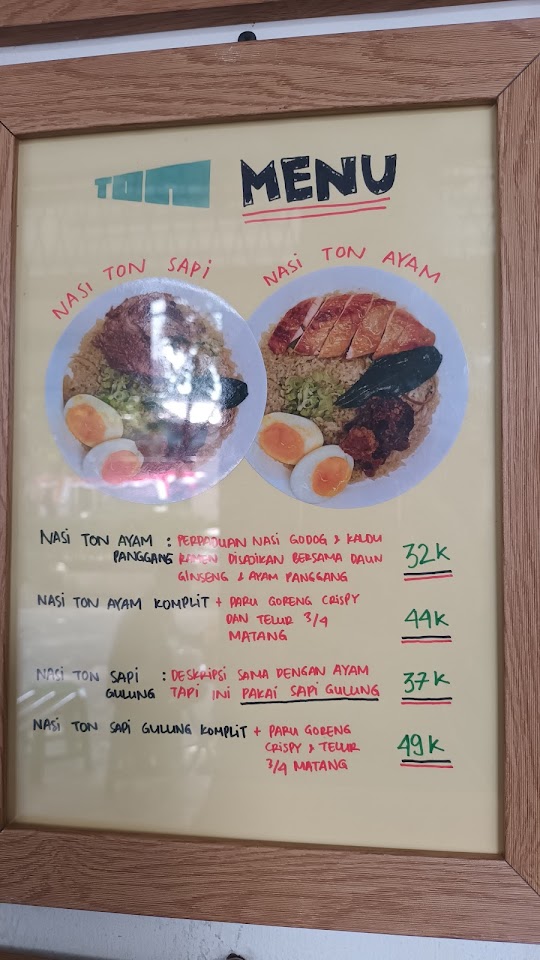 TON MENU
NASI TON SAPI
NASI TON AYAM
NASI TON AYAM : PERPADUAN NASI GODOG & KALDU
PANGGANG RAMEN DISADIKAN BERSAMA DAUN 32K
GINSENG & AYAM PANGGANG
NASI TON AYAM KOMPLIT + PARU GORENG CRISPY
DAN TELUR 3/4 44K
MATANG
NASI TON SAPI : DESKRIPSI SAMA DENGAN AYAM 37K
GULUNG TAPI INI PAKAI SAPI GULUNG
NASI TON SAPI GULUNG KOMPLIT + PARU GORENG
CRISPY & TELUR 49K
3/4 MATANG